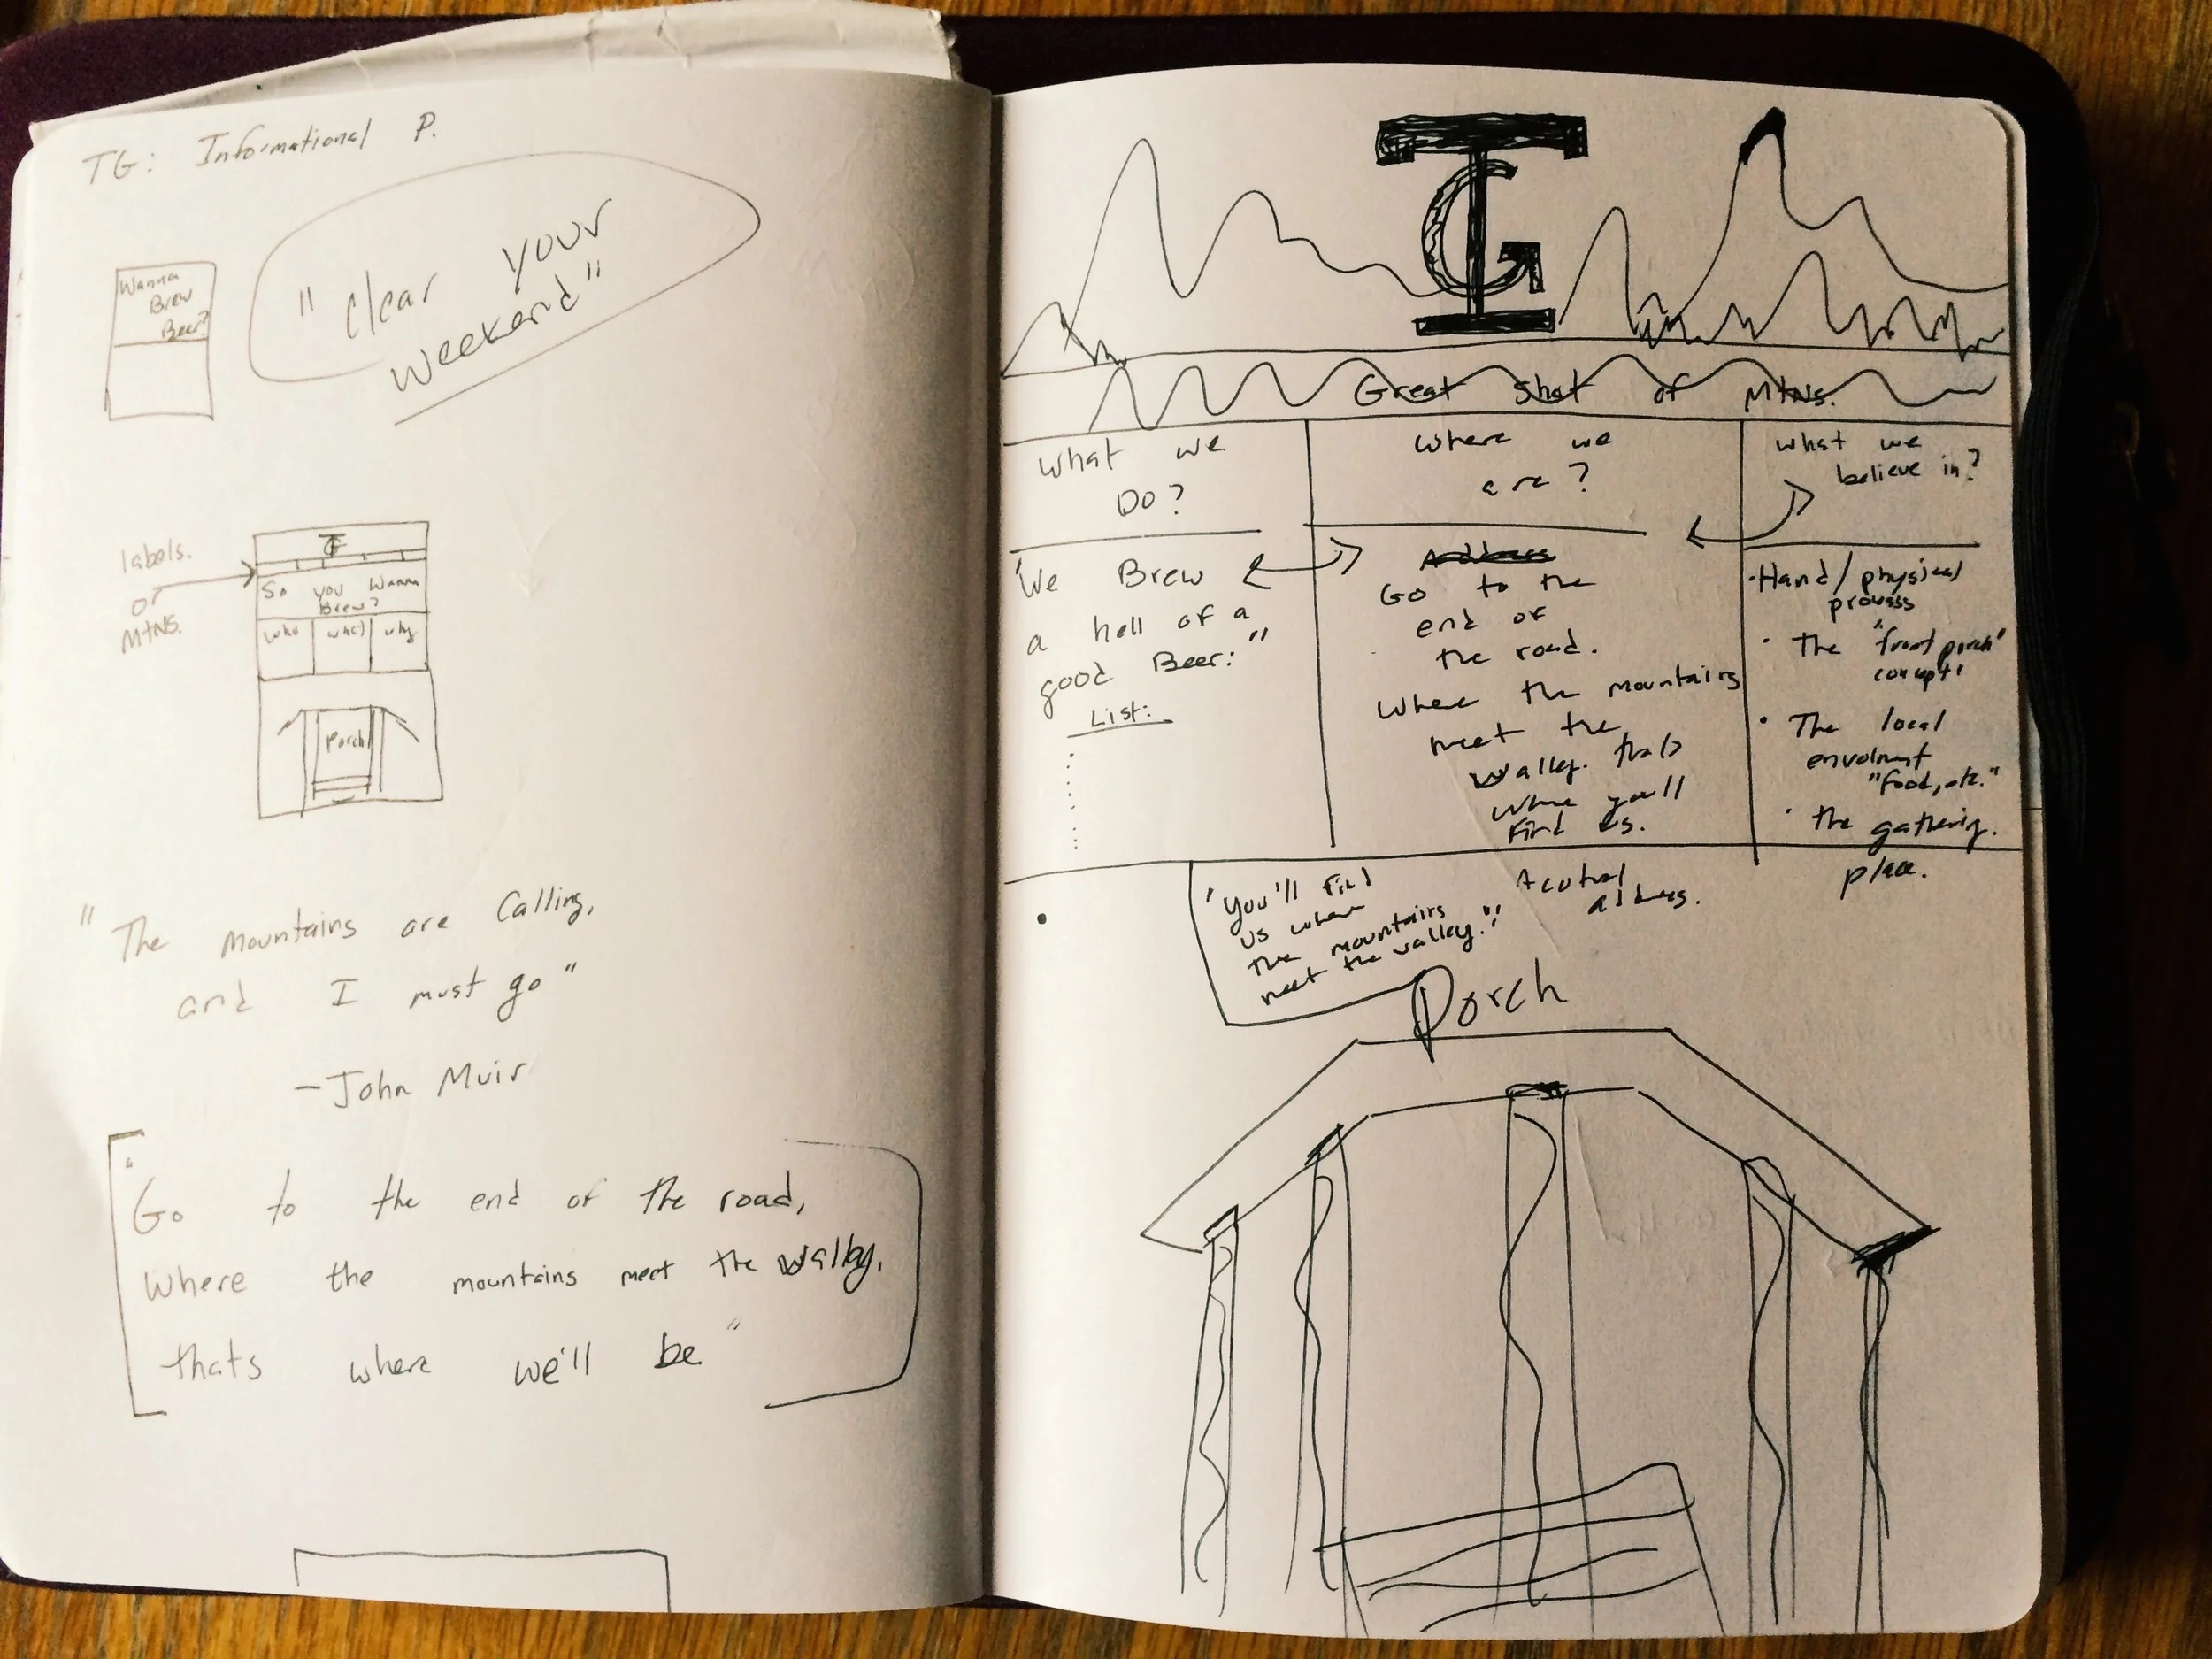 TG: Informational P.
Wanna
Brew
Beer?
"Clear your
weekend"
labels.
or
MtNS.
TG
So you Wanna
Brew?
who
what
why
Porch
"The mountains are Calling,
and I must go"
-John Muir
"Go to the end of the road,
where the mountains meet the valley,
thats where we'll be"
TG
Great Shot of MtNS.
What we
Do?
"We Brew
a hell of a
good Beer:"
List:
Where we
are?
Address
Go to the
end of
the road.
Where the mountains
meet the
valley. thats
where you'll
find us.
What we
believe in?
·Hand/physical
prousss
· The "front porch"
· The local
envolment
"food, etc."
· the gathering.
place.
"You'll find
us where
the mountains
meet the valley."
Acutual
address.
Porch